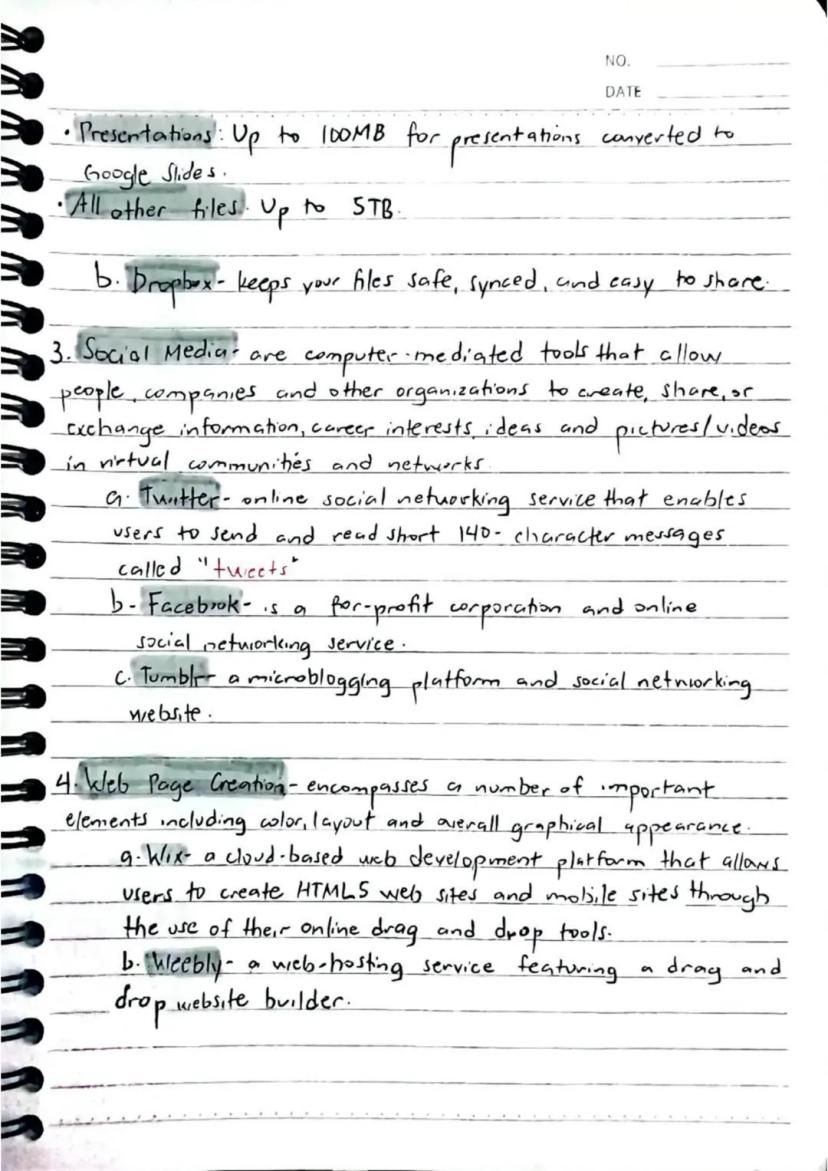 NO.
DATE
• Presentations: Up to 100MB for presentations converted to
Google Slides.
• All other files: Up to 5TB.
b. Dropbox- keeps your files safe, synced, and easy to share.
3. Social Media- are computer-mediated tools that allow
people, companies and other organizations to create, share, or
exchange information, career interests, ideas and pictures/videos
in virtual communities and networks.
a. Twitter- online social networking service that enables
users to send and read short 140- character messages
called "tweets"
b- Facebook- is a for-profit corporation and online
social networking service.
c. Tumblr- a microblogging platform and social networking
website.
4. Web Page Creation- encompasses a number of important
elements including color, layout and overall graphical appearance.
a. Wix- a cloud-based web development platform that allows
users to create HTML5 web sites and mobile sites through
the use of their online drag and drop tools.
b. Weebly- a web-hosting service featuring a drag and
drop website builder.